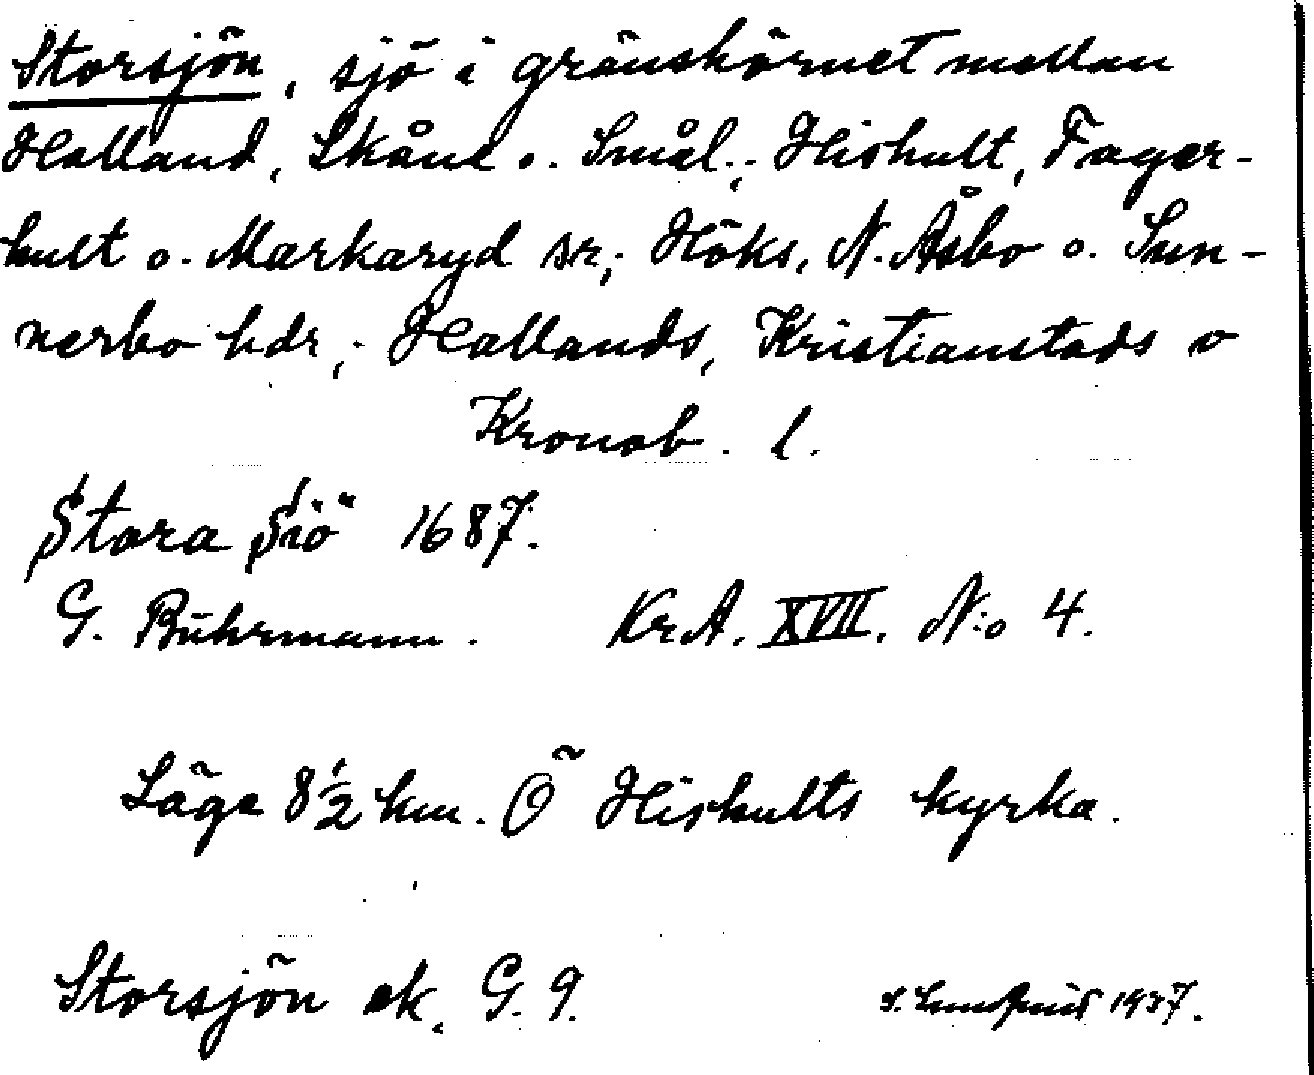 Storsjön, sjö i gränshörnet mellan
Halland, Skåne o. Smål.; Hishult, Fager-
hult o. Markaryd sr; Höks, N. Åsbo o. Sun-
nerbo hdr; Hallands, Kristianstads o
Kronob. l.
Stora Siö 1687.
G. Buhrmann. KrA. XVII. N:o 4.
Läge 8 1/2 km. Ö Hishults kyrka.
Storsjön ek. G. 9. S. Lundquist 1937.